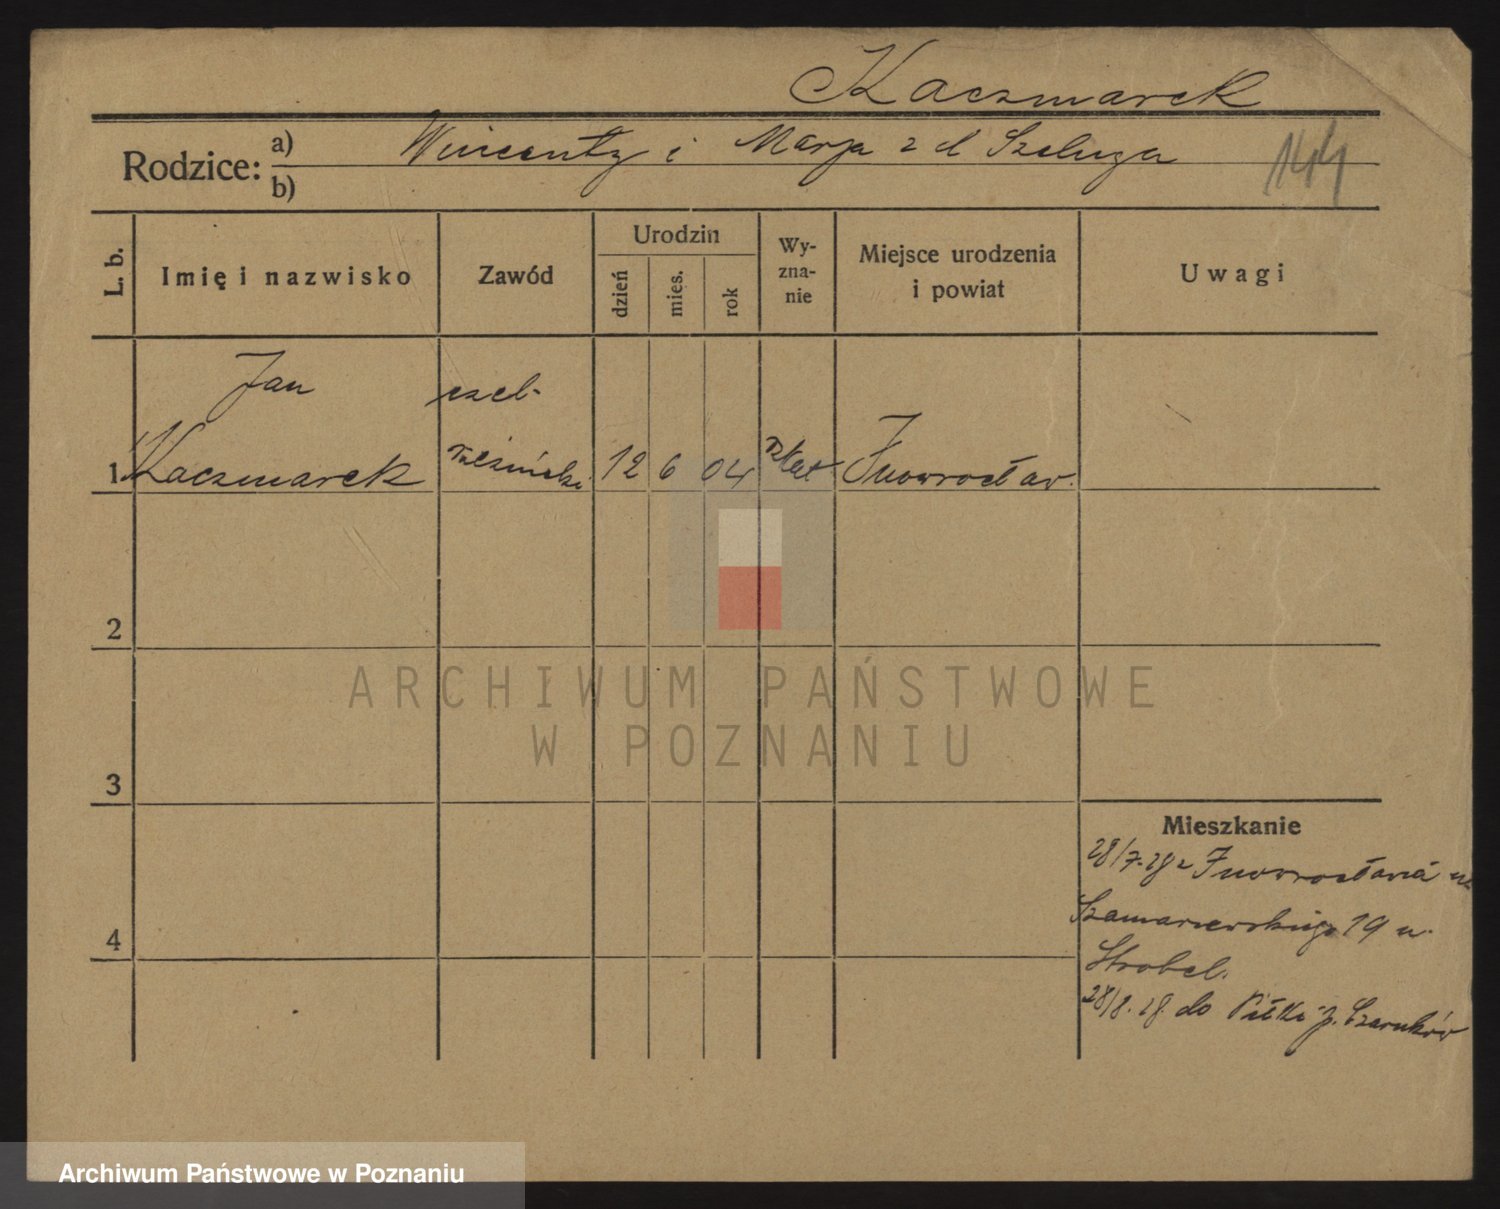 Kaczmarek
Rodzice: a) Wincenty i Marja z d Szeluga
b)
144
L. b.
Imię i nazwisko
Zawód
Urodzin
dzień
mies.
rok
Wy-
zna-
nie
Miejsce urodzenia
i powiat
Uwagi
Jan
czel.
1 Kaczmarek
rzeźnicki
12 6 04
Rz kat
Inowrocław.
2
3
4
Mieszkanie
28/7.28 z Inowrocławia
Szamarzewskiego 19 u.
Strobel.
28/8.28. do Piłki p. Czarnków
ARCHIWUM PAŃSTWOWE
W POZNANIU
Archiwum Państwowe w Poznaniu